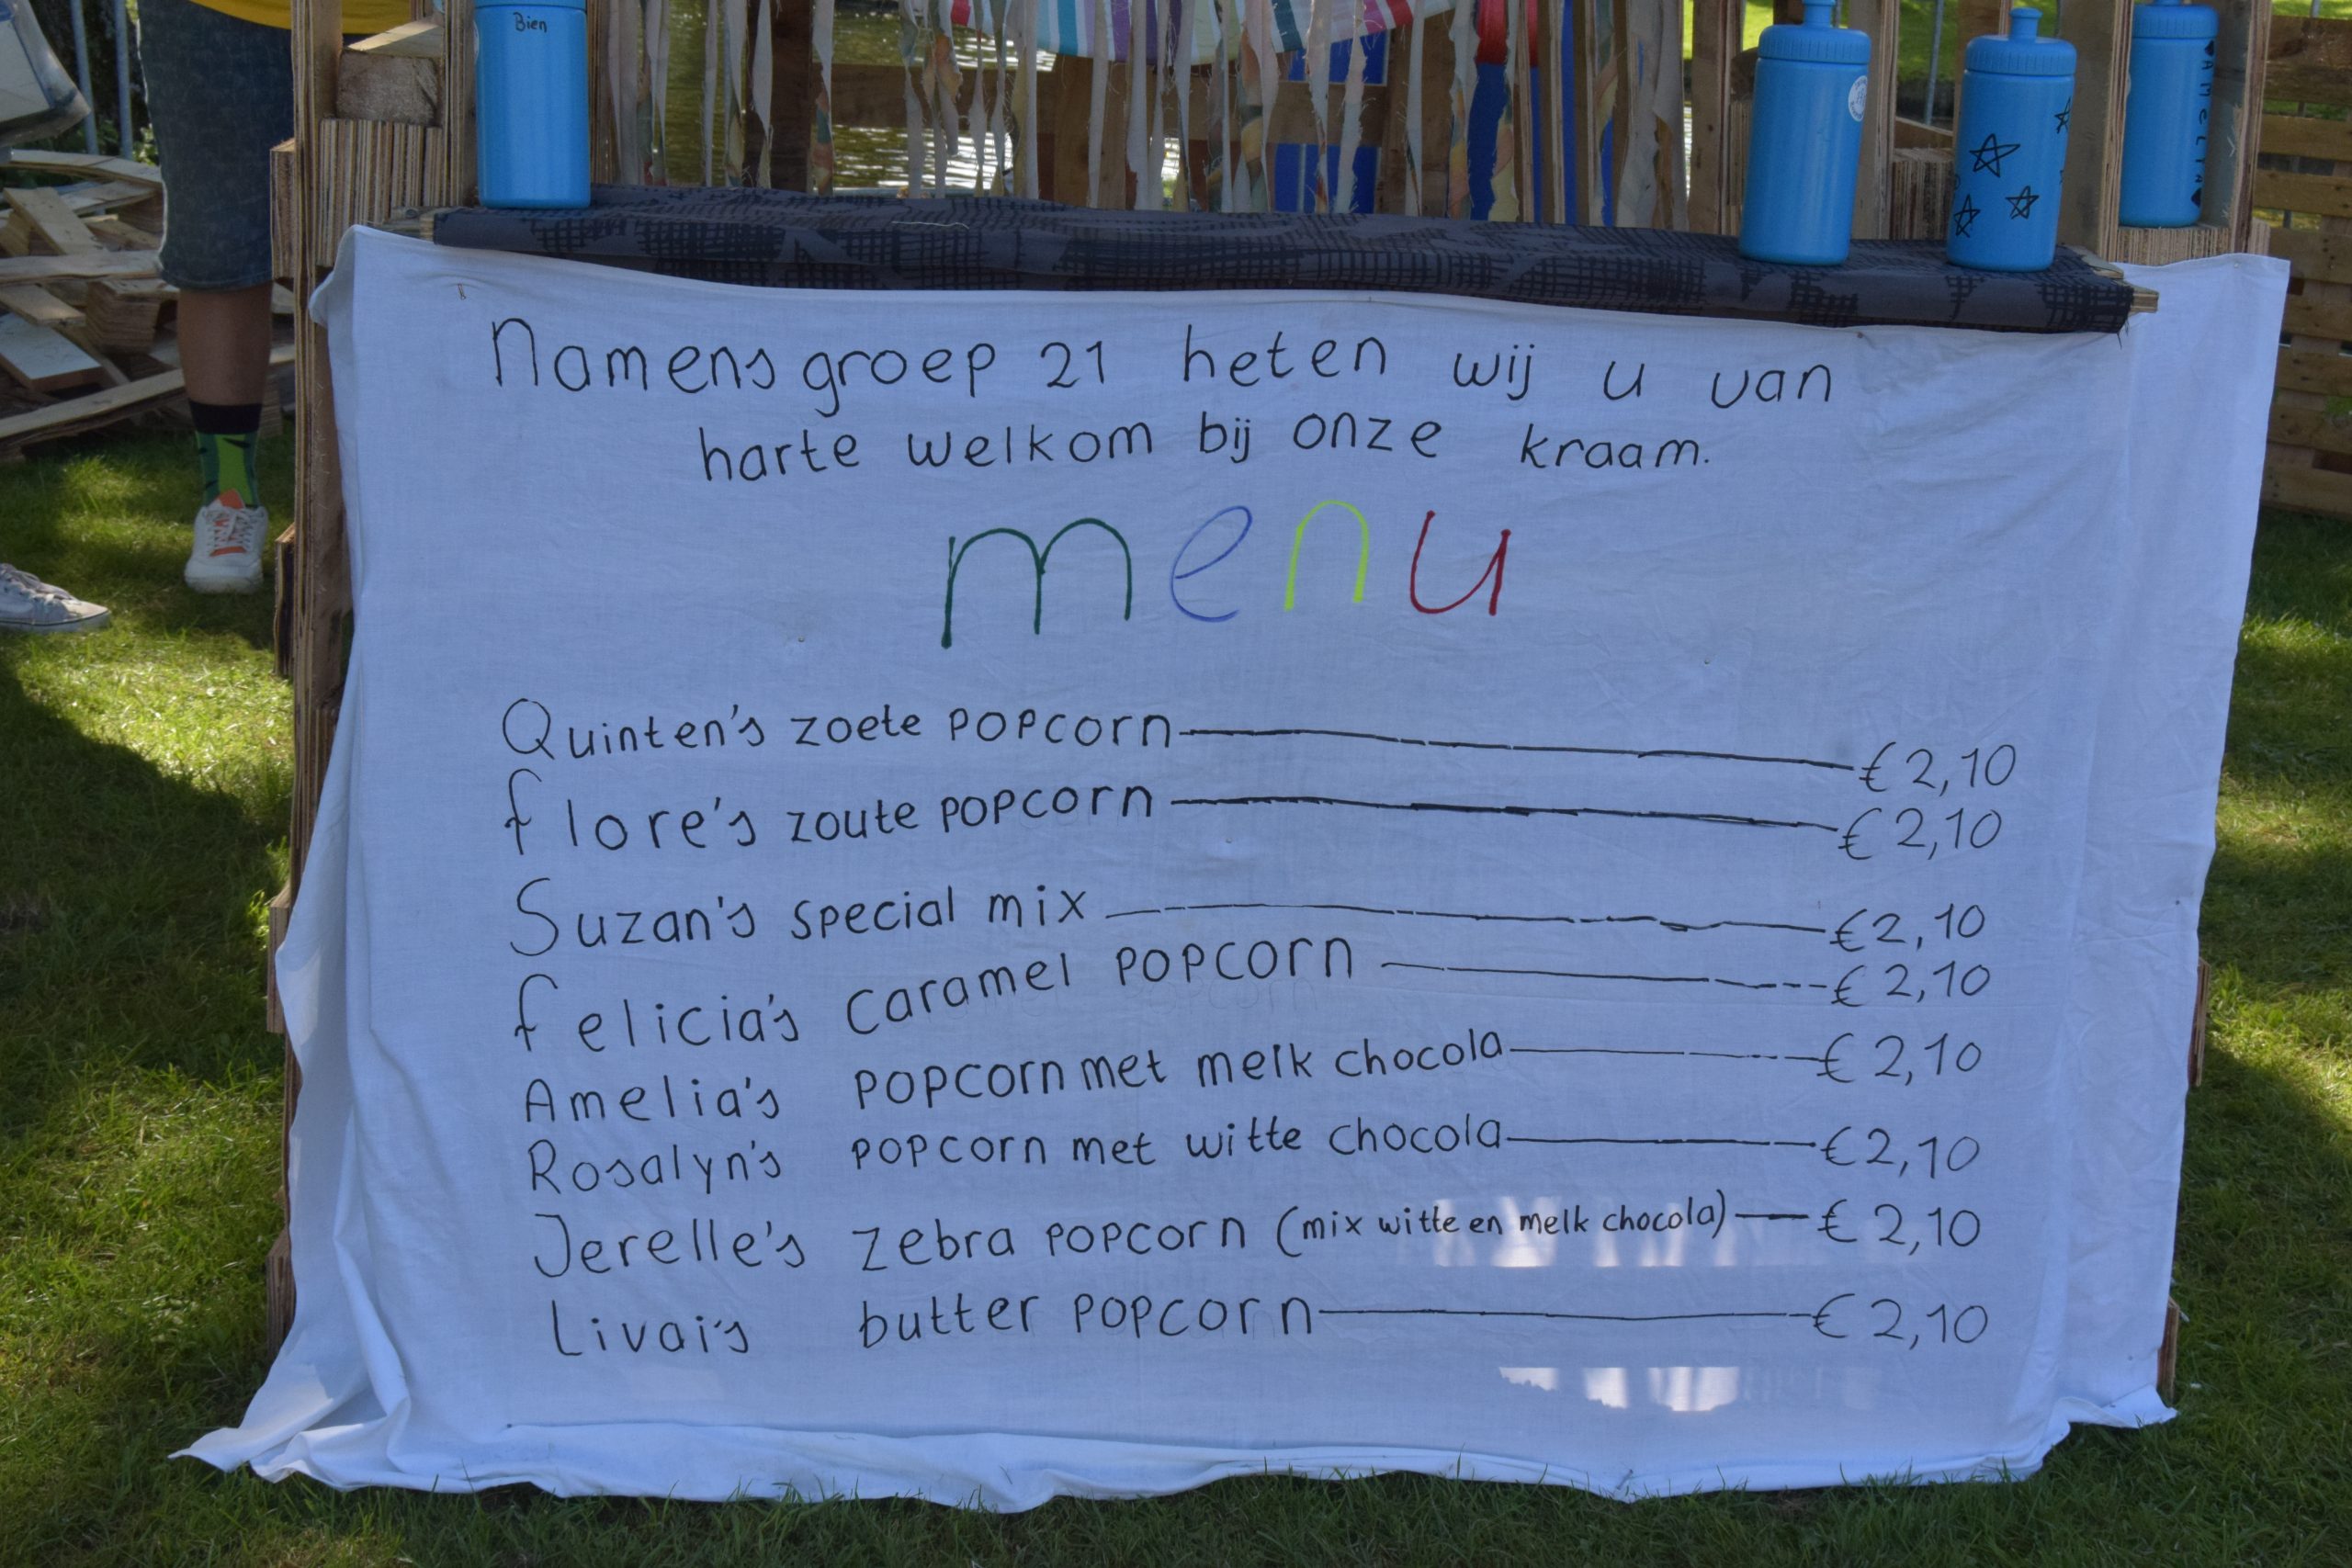 Bien
AMELIA
Namens groep 21 heten wij u van
harte welkom bij onze kraam.
menu
Quinten's zoete popcorn €2,10
flore's zoute popcorn €2,10
Suzan's special mix €2,10
felicia's caramel popcorn €2,10
Amelia's popcorn met melk chocola €2,10
Rosalyn's popcorn met witte chocola €2,10
Jerelle's zebra popcorn (mix witte en melk chocola) €2,10
Livai's butter popcorn €2,10